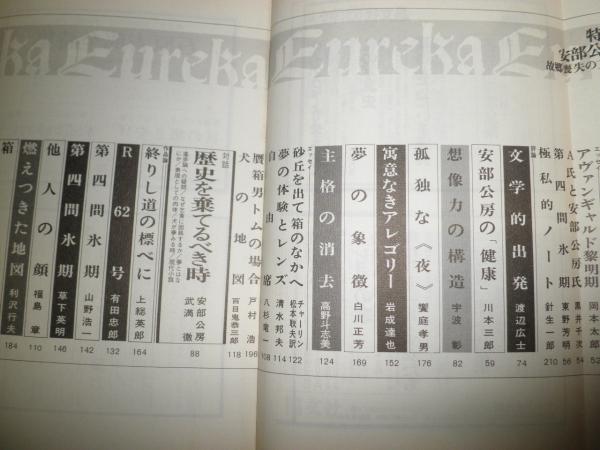 Eureka
Eureka
特
安部公
故郷喪失の
アヴァンギャルド黎明期 岡本太郎 52
A氏と安部公房氏 黒井千次 54
第四間氷期 東野芳明 56
極私的ノート 針生一郎 210
評論
文学的出発 渡辺広士 74
安部公房の「健康」 川本三郎 59
想像力の構造 宇波彰 82
孤独な《夜》 饗庭孝男 176
寓意なきアレゴリー 岩成達也 152
夢の象徴 白川正芳 169
主格の消去 高野斗志美 124
エッセイ
砂丘を出て箱のなかへ チャーリン 松本敏夫訳 122
夢の体験とレンズ 清水邦夫 114
自由席 八杉竜一 108
贋箱男トムの場合 戸村浩 196
犬の地図 百目鬼恭三郎 118
対話
歴史を棄てるべき時 安部公房 武満徹 88
作品論
終りし道の標べに 上総英郎 164
R62号 有田忠郎 132
第四間氷期 山野浩一 142
第四間氷期 草下英明 146
他人の顔 福島章 110
燃えつきた地図 利沢行夫 184
箱